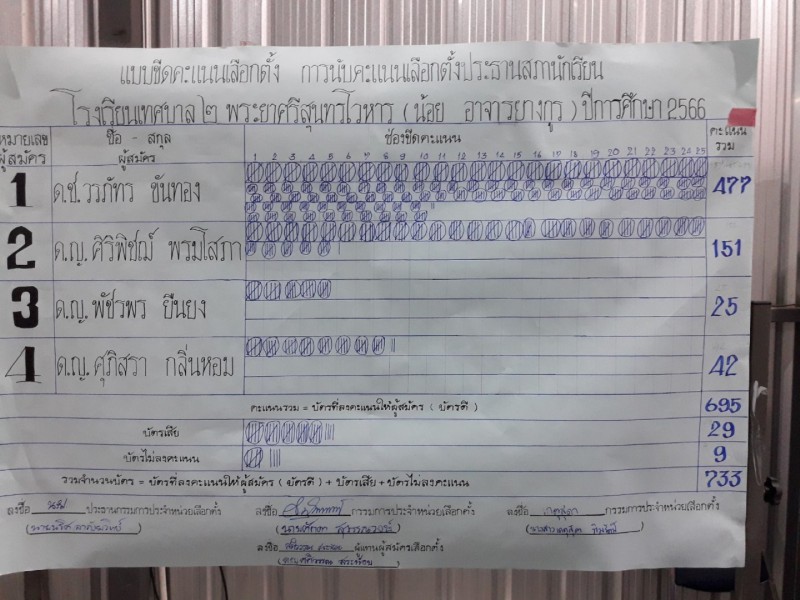 แบบขีดคะแนนเลือกตั้ง การนับคะแนนเลือกตั้งประธานสภานักเรียน
โรงเรียนเทศบาล ๒ พระยาศรีสุนทรโวหาร ( น้อย อาจารยางกูร ) ปีการศึกษา 2566
หมายเลขผู้สมัคร ชื่อ - สกุล ผู้สมัคร ช่องขีดคะแนน คะแนนรวม
1 2 3 4 5 6 7 8 9 10 11 12 13 14 15 16 17 18 19 20 21 22 23 24 25
1 ด.ช. วรภัทร ขันทอง 477
2 ด.ญ. ศิริพิชฌ์ พรมโสภา 151
3 ด.ญ. พัชรพร ยืนยง 25
4 ด.ญ. ศุภิสรา กลิ่นหอม 42
คะแนนรวม = บัตรที่ลงคะแนนให้ผู้สมัคร ( บัตรดี ) 695
บัตรเสีย 29
บัตรไม่ลงคะแนน 9
รวมจำนวนบัตร = บัตรที่ลงคะแนนให้ผู้สมัคร ( บัตรดี ) + บัตรเสีย + บัตรไม่ลงคะแนน 733
ลงชื่อ ประธานกรรมการประจำหน่วยเลือกตั้ง ลงชื่อ กรรมการประจำหน่วยเลือกตั้ง ลงชื่อ กรรมการประจำหน่วยเลือกตั้ง
ลงชื่อ ผู้แทนผู้สมัครเลือกตั้ง